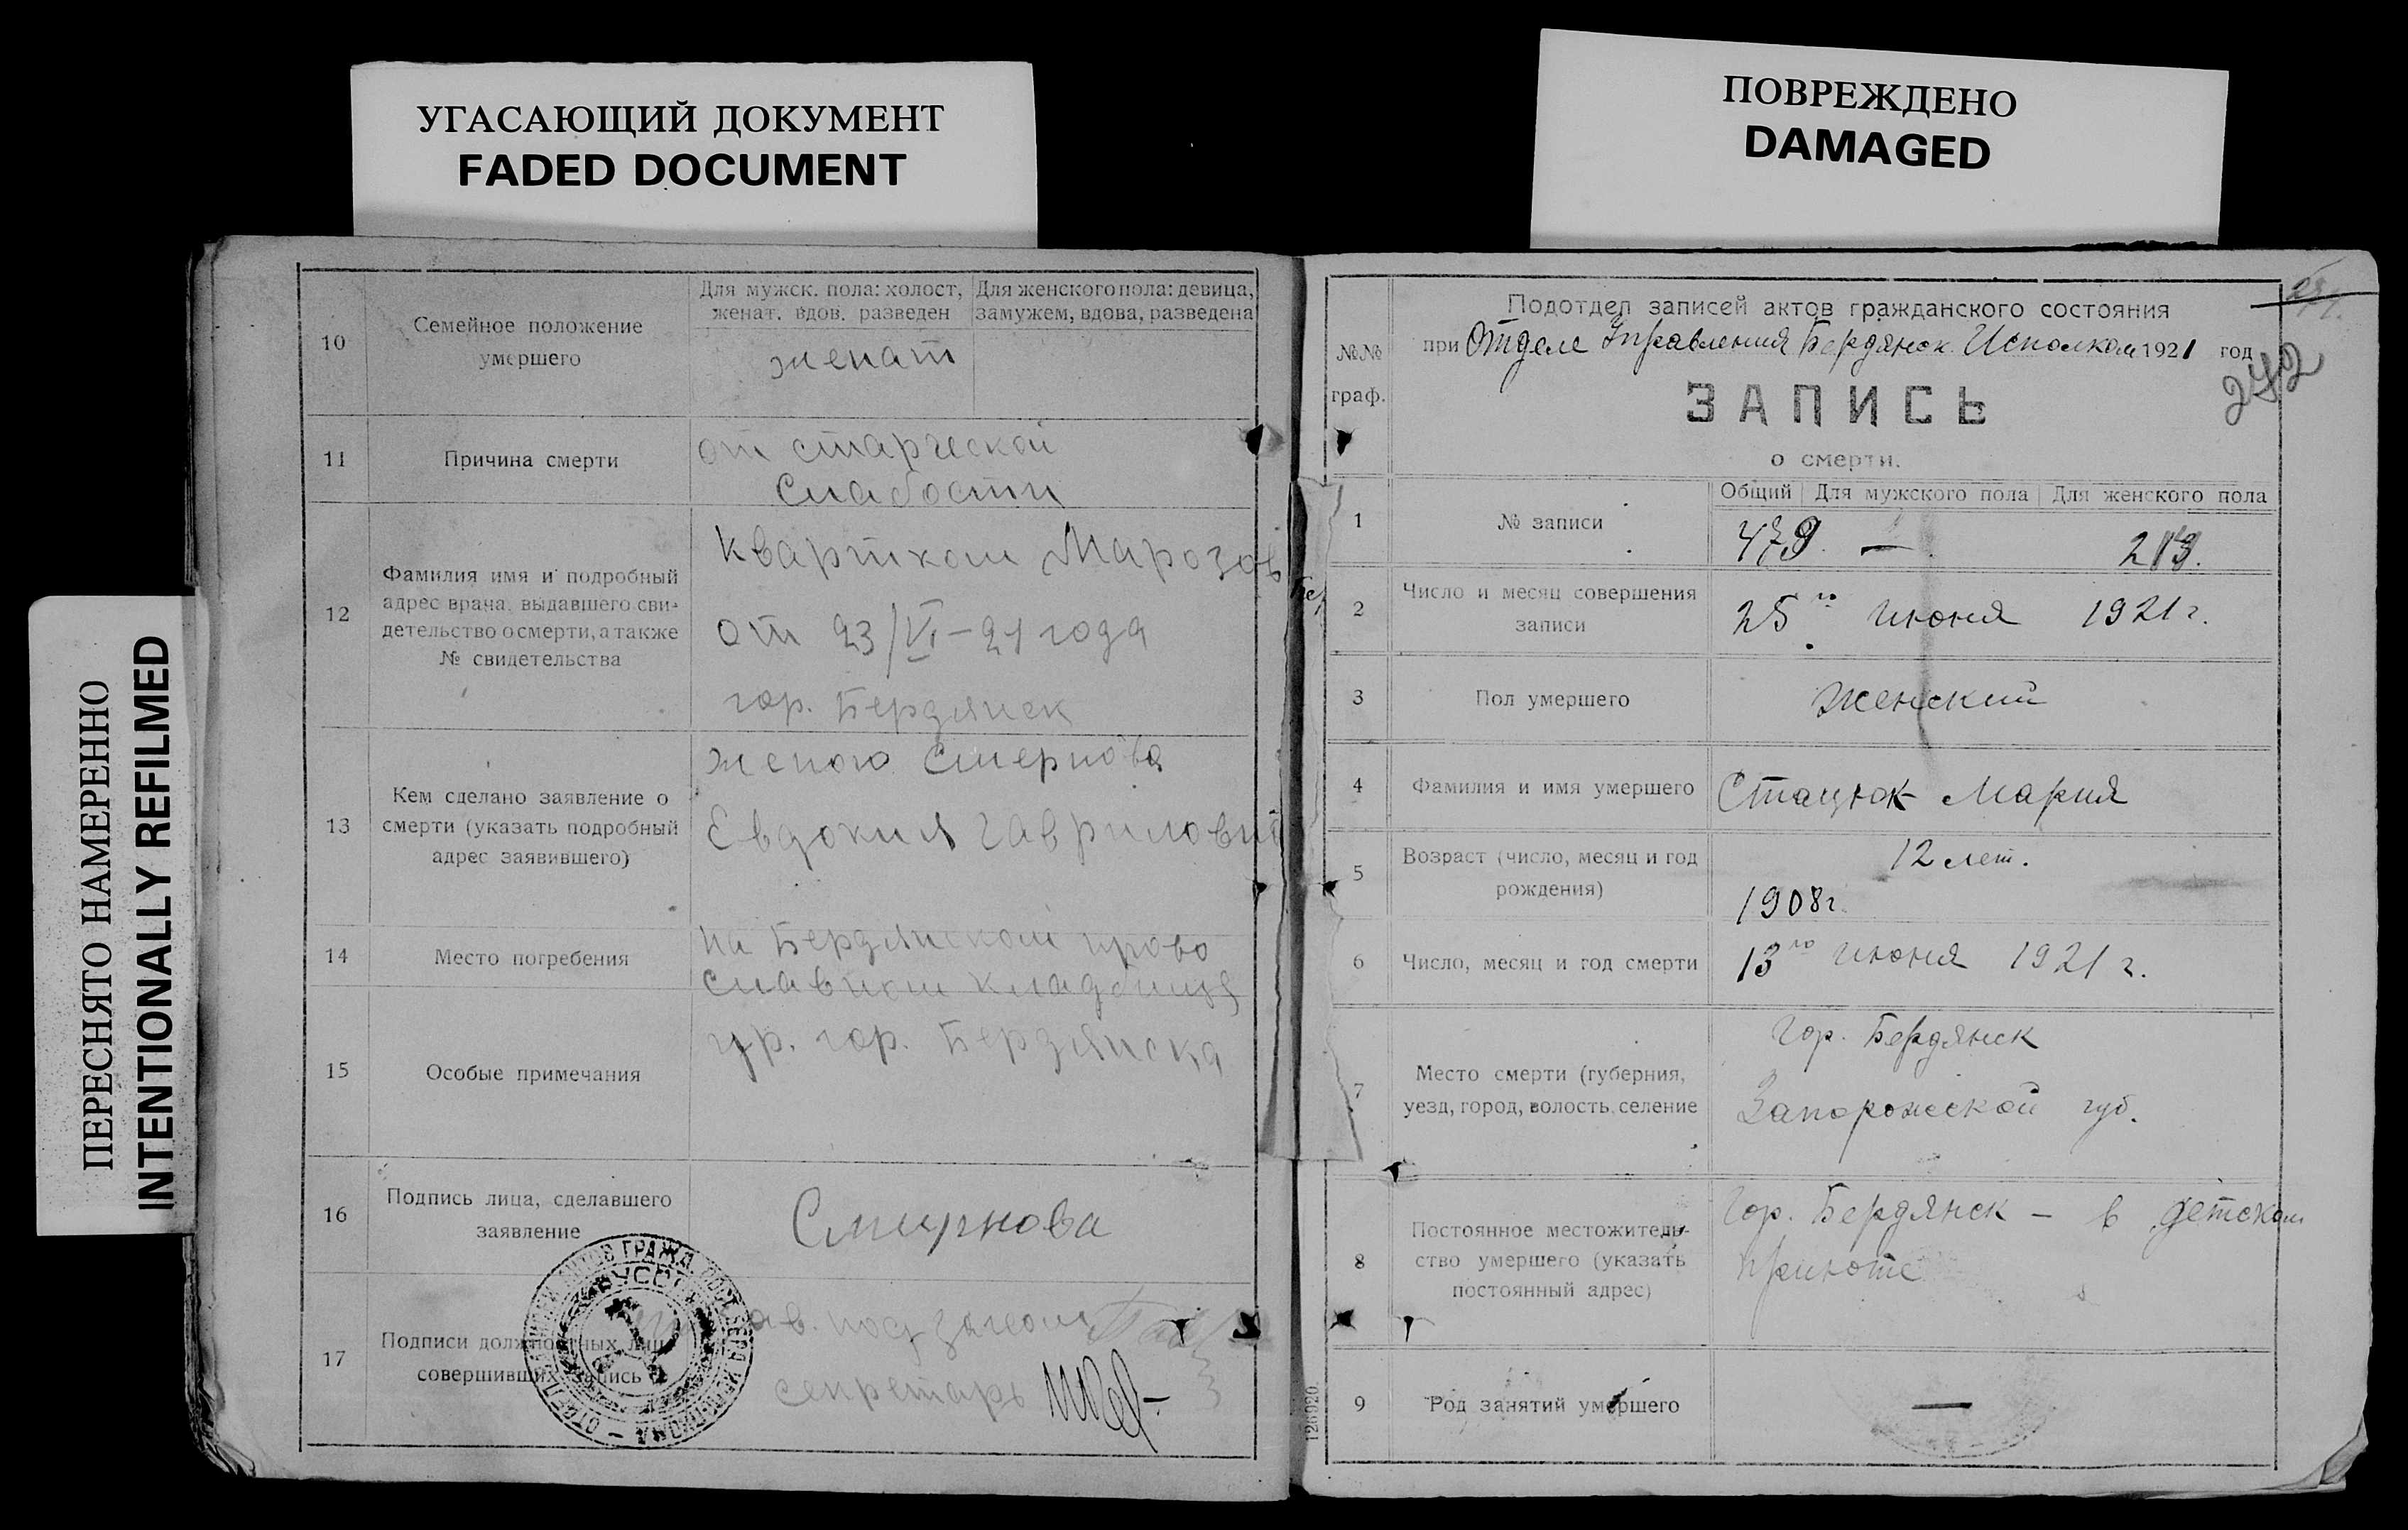 УГАСАЮЩИЙ ДОКУМЕНТ
FADED DOCUMENT
ПОВРЕЖДЕНО
DAMAGED
ПЕРЕСНЯТО НАМЕРЕННО
INTENTIONALLY REFILMED
10
Семейное положение
умершего
Для мужск. пола: холост,
женат. вдов. разведен
Для женского пола: девица,
замужем, вдова, разведена
женат
11
Причина смерти
от старческой
слабости
12
Фамилия имя и подробный
адрес врача, выдавшего сви-
детельство о смерти, а также
№ свидетельства
Квартком Марозов
от 23/VI-21 года
гор. Бердянск
13
Кем сделано заявление о
смерти (указать подробный
адрес заявившего)
женою Смернова
Евдокия Гавриловна
14
Место погребения
на Бердянском право
славном кладбище
15
Особые примечания
гр. гор. Бердянска
16
Подпись лица, сделавшего
заявление
Смирнова
17
Подписи должностных лиц
совершивших запись
секретарь
№№
граф.
Подотдел записей актов гражданского состояния
при Отделе Управления Бердянск. Исполком 1921 год
242
ЗАПИСЬ
о смерти.
1
№ записи
Общий
Для мужского пола
Для женского пола
479. — . 213.
2
Число и месяц совершения
записи
25го июня 1921 г.
3
Пол умершего
Женский
4
Фамилия и имя умершего
Стацюк Мария
5
Возраст (число, месяц и год
рождения)
12 лет.
1908г.
6
Число, месяц и год смерти
13го июня 1921 г.
7
Место смерти (губерния,
уезд, город, волость, селение
Гор. Бердянск
Запорожской губ.
8
Постоянное местожитель-
ство умершего (указать
постоянный адрес)
Гор. Бердянск — в детском
приюте
9
Род занятий умершего
—
126920